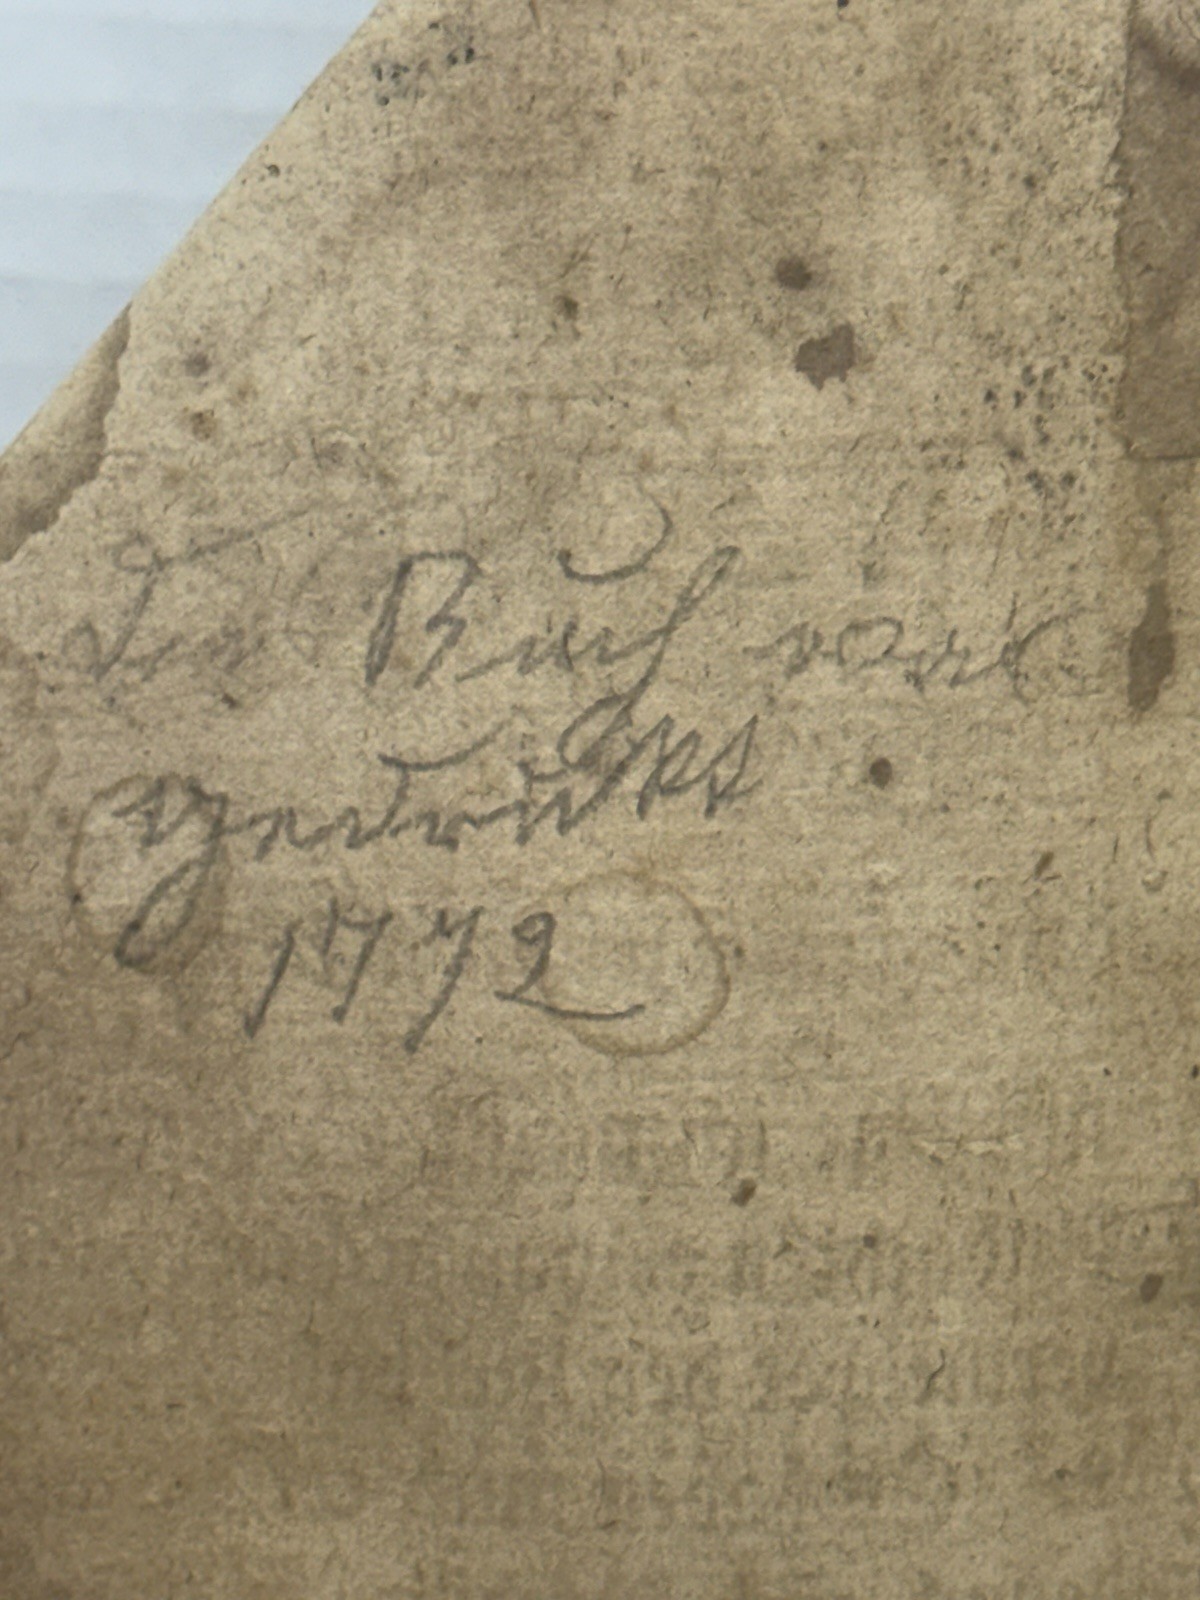 Buch war
gedruckt
1772